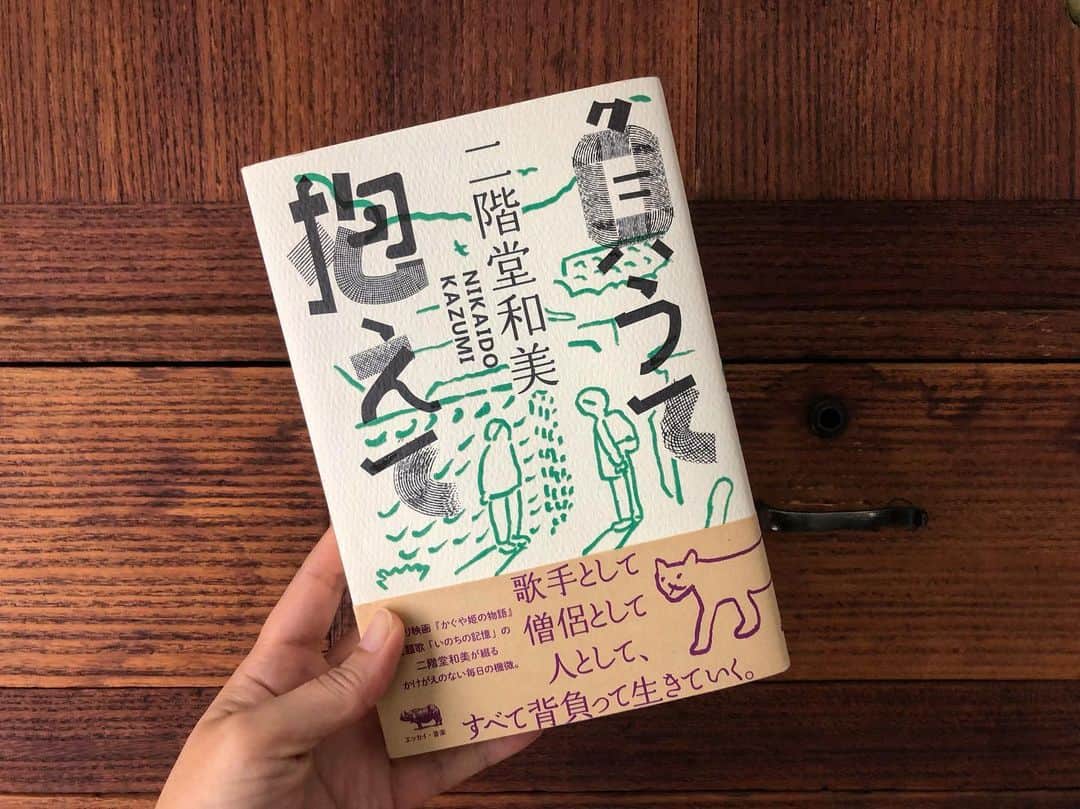 負うて
抱えて
二階堂和美
NIKAIDO
KAZUMI
歌手として
僧侶として
人として、
すべて背負って生きていく。
映画『かぐや姫の物語』
題歌「いのちの記憶」の
二階堂和美が綴る
かけがえのない毎日の機微。
エッセイ・音楽